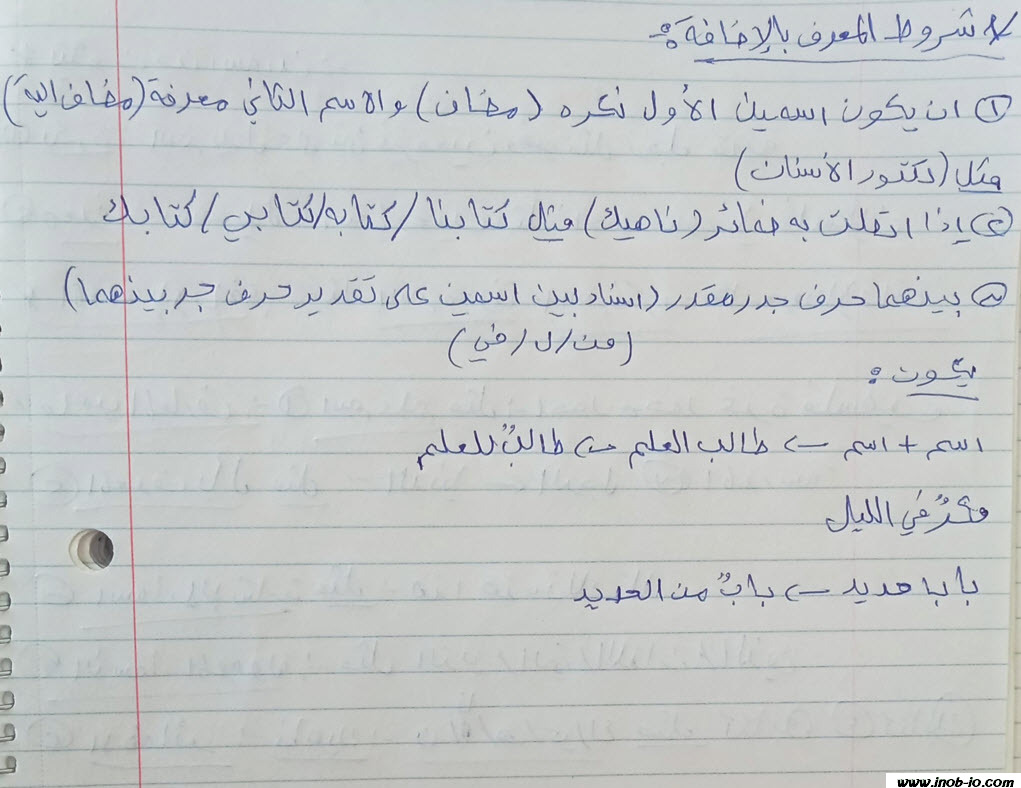 * شروط المعرف بالإضافة :-
① ان يكون اسمين الأول نكره (مضاف) والاسم الثاني معرفة (مضاف اليه)
مثل (دكتور الأسنان)
② إذا اتصلت به ضمائر (ناهيك) مثل كتابنا / كتابه / كتابي / كتابك
③ بينهما حرف جر مقدر (اسناد بين اسمين على تقدير حرف جر بينهما)
(من / ل / في)
يكون :
اسم + اسم ← طالب العلم ← طالبٌ للعلم
مكرٌ في الليل
بابا حديد ← بابٌ من الحديد
www.inob-jo.com